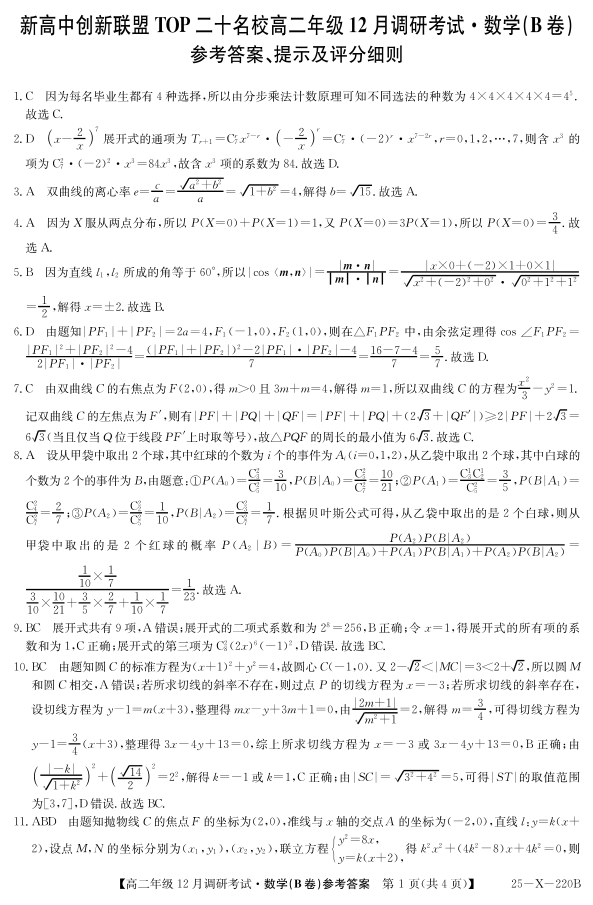 新高中创新联盟 TOP 二十名校高二年级 12 月调研考试·数学(B 卷)
参考答案、提示及评分细则
1.C 因为每名毕业生都有 4 种选择,所以由分步乘法计数原理可知不同选法的种数为 4×4×4×4×4=4⁵.
故选 C.
2.D (x-2/x)⁷ 展开式的通项为 Tᵣ₊₁=C₇ʳx⁷⁻ʳ·(-2/x)ʳ=C₇ʳ·(-2)ʳ·x⁷⁻²ʳ,r=0,1,2,…,7,则含 x³ 的
项为 C₇²·(-2)²·x³=84x³,故含 x³ 项的系数为 84.故选 D.
3.A 双曲线的离心率 e=c/a=√(a²+b²)/a=√(1+b²)=4,解得 b=√15.故选 A.
4.A 因为 X 服从两点分布,所以 P(X=0)+P(X=1)=1,又 P(X=0)=3P(X=1),所以 P(X=0)=3/4.故
选 A.
5.B 因为直线 l₁,l₂ 所成的角等于 60°,所以|cos⟨m,n⟩|=|m·n|/(|m|·|n|)=|x×0+(-2)×1+0×1|/(√(x²+(-2)²+0²)·√(0²+1²+1²))
=1/2,解得 x=±2.故选 B.
6.D 由题知|PF₁|+|PF₂|=2a=4,F₁(-1,0),F₂(1,0),则在△F₁PF₂ 中,由余弦定理得 cos ∠F₁PF₂=
(|PF₁|²+|PF₂|²-4)/(2|PF₁|·|PF₂|)=((|PF₁|+|PF₂|)²-2|PF₁|·|PF₂|-4)/7=(16-7-4)/7=5/7.故选 D.
7.C 由双曲线 C 的右焦点为 F(2,0),得 m>0 且 3m+m=4,解得 m=1,所以双曲线 C 的方程为x²/3-y²=1.
记双曲线 C 的左焦点为 F′,则有|PF|+|PQ|+|QF|=|PF|+|PQ|+(2√3+|QF′|)≥2|PF|+2√3=
6√3(当且仅当 Q 位于线段 PF′上时取等号),故△PQF 的周长的最小值为 6√3.故选 C.
8.A 设从甲袋中取出 2 个球,其中红球的个数为 i 个的事件为 Aᵢ(i=0,1,2),从乙袋中取出 2 个球,其中白球的
个数为 2 个的事件为 B,由题意:①P(A₀)=C₃²/C₅²=3/10,P(B|A₀)=C₅²/C₇²=10/21;②P(A₁)=C₃¹C₂¹/C₅²=3/5,P(B|A₁)=
C₄²/C₇²=2/7;③P(A₂)=C₂²/C₅²=1/10,P(B|A₂)=C₃²/C₇²=1/7.根据贝叶斯公式可得,从乙袋中取出的是 2 个白球,则从
甲袋中取出的是 2 个红球的概率 P(A₂|B)=P(A₂)P(B|A₂)/(P(A₀)P(B|A₀)+P(A₁)P(B|A₁)+P(A₂)P(B|A₂))=
(1/10×1/7)/(3/10×10/21+3/5×2/7+1/10×1/7)=1/23.故选 A.
9.BC 展开式共有 9 项,A 错误;展开式的二项式系数和为 2⁸=256,B 正确;令 x=1,得展开式的所有项的系
数和为 1,C 正确;展开式的第三项为 C₈²(2x)⁶(-1)²,D 错误.故选 BC.
10.BC 由题知圆 C 的标准方程为(x+1)²+y²=4,故圆心 C(-1,0).又 2-√2<|MC|=3<2+√2,所以圆 M
和圆 C 相交,A 错误;若所求切线的斜率不存在,则过点 P 的切线方程为 x=-3;若所求切线的斜率存在,
设切线方程为 y-1=m(x+3),整理得 mx-y+3m+1=0,由|2m+1|/√(m²+1)=2,解得 m=3/4,可得切线方程为
y-1=3/4(x+3),整理得 3x-4y+13=0,综上所求切线方程为 x=-3 或 3x-4y+13=0,B 正确;由
(|-k|/√(1+k²))²+(√14/2)²=2²,解得 k=-1 或 k=1,C 正确;由|SC|=√(3²+4²)=5,可得|ST|的取值范围
为[3,7],D 错误.故选 BC.
11.ABD 由题知抛物线 C 的焦点 F 的坐标为(2,0),准线与 x 轴的交点 A 的坐标为(-2,0),直线 l:y=k(x+
2),设点 M,N 的坐标分别为(x₁,y₁),(x₂,y₂),联立方程{y²=8x, y=k(x+2), 得 k²x²+(4k²-8)x+4k²=0,则
【高二年级 12 月调研考试·数学(B 卷)参考答案 第 1 页(共 4 页)】 25-X-220B